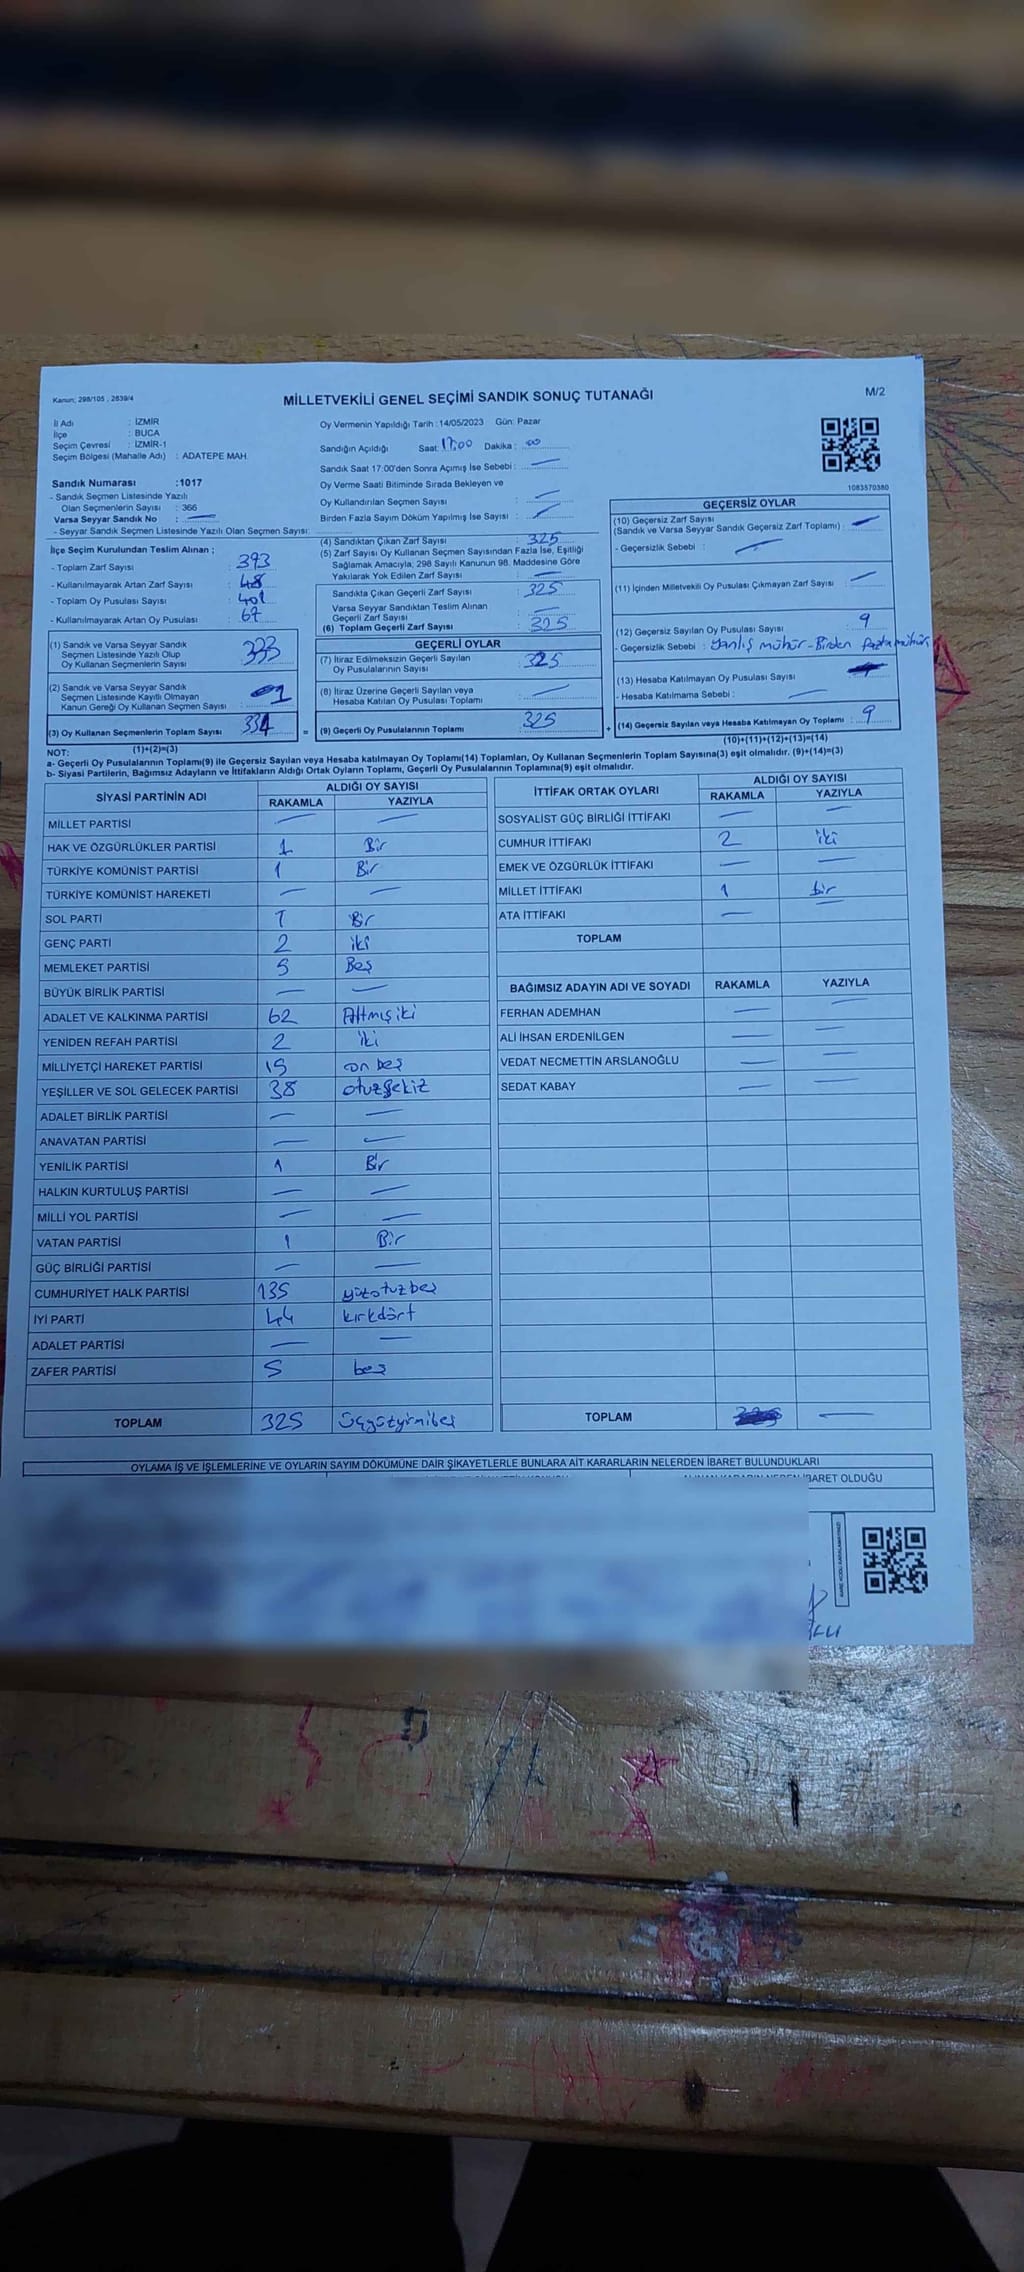 Kanun; 298/105 , 2839/4
MİLLETVEKİLİ GENEL SEÇİMİ SANDIK SONUÇ TUTANAĞI
M/2
İl Adı : İZMİR
İlçe : BUCA
Seçim Çevresi : İZMİR-1
Seçim Bölgesi (Mahalle Adı) : ADATEPE MAH.
Sandık Numarası :1017
- Sandık Seçmen Listesinde Yazılı
Olan Seçmenlerin Sayısı : 366
Varsa Seyyar Sandık No : —
- Seyyar Sandık Seçmen Listesinde Yazılı Olan Seçmen Sayısı:
Oy Vermenin Yapıldığı Tarih :14/05/2023 Gün: Pazar
Sandığın Açıldığı Saat: 17:00 Dakika : 00
Sandık Saat 17:00'den Sonra Açımış İse Sebebi : —
Oy Verme Saati Bitiminde Sırada Bekleyen ve
Oy Kullandırılan Seçmen Sayısı : —
Birden Fazla Sayım Döküm Yapılmış İse Sayısı : —
1083570380
İlçe Seçim Kurulundan Teslim Alınan ;
- Toplam Zarf Sayısı : 393
- Kullanılmayarak Artan Zarf Sayısı :
- Toplam Oy Pusulası Sayısı : 401
- Kullanılmayarak Artan Oy Pusulası : 67
(1) Sandık ve Varsa Seyyar Sandık
Seçmen Listesinde Yazılı Olup
Oy Kullanan Seçmenlerin Sayısı : 333
(2) Sandık ve Varsa Seyyar Sandık
Seçmen Listesinde Kayıtlı Olmayan
Kanun Gereği Oy Kullanan Seçmen Sayısı : 1
(3) Oy Kullanan Seçmenlerin Toplam Sayısı : 334
(4) Sandıktan Çıkan Zarf Sayısı : 325
(5) Zarf Sayısı Oy Kullanan Seçmen Sayısından Fazla İse, Eşitliği
Sağlamak Amacıyla, 298 Sayılı Kanunun 98. Maddesine Göre
Yakılarak Yok Edilen Zarf Sayısı : —
Sandıkta Çıkan Geçerli Zarf Sayısı : 325
Varsa Seyyar Sandıktan Teslim Alınan
Geçerli Zarf Sayısı : —
(6) Toplam Geçerli Zarf Sayısı : 325
GEÇERLİ OYLAR
(7) İtiraz Edilmeksizin Geçerli Sayılan
Oy Pusulalarının Sayısı : 325
(8) İtiraz Üzerine Geçerli Sayılan veya
Hesaba Katılan Oy Pusulası Toplamı : —
= (9) Geçerli Oy Pusulalarının Toplamı : 325
GEÇERSİZ OYLAR
(10) Geçersiz Zarf Sayısı
(Sandık ve Varsa Seyyar Sandık Geçersiz Zarf Toplamı) : —
- Geçersizlik Sebebi : —
(11) İçinden Milletvekili Oy Pusulası Çıkmayan Zarf Sayısı : —
(12) Geçersiz Sayılan Oy Pusulası Sayısı : 9
- Geçersizlik Sebebi : Yanlış mühür - Birden fazla mühür
(13) Hesaba Katılmayan Oy Pusulası Sayısı :
- Hesaba Katılmama Sebebi : —
+ (14) Geçersiz Sayılan veya Hesaba Katılmayan Oy Toplamı : 9
NOT: (1)+(2)=(3)
(10)+(11)+(12)+(13)=(14)
a- Geçerli Oy Pusulalarının Toplamı(9) ile Geçersiz Sayılan veya Hesaba katılmayan Oy Toplamı(14) Toplamları, Oy Kullanan Seçmenlerin Toplam Sayısına(3) eşit olmalıdır. (9)+(14)=(3)
b- Siyasi Partilerin, Bağımsız Adayların ve İttifakların Aldığı Ortak Oyların Toplamı, Geçerli Oy Pusulalarının Toplamına(9) eşit olmalıdır.
SİYASİ PARTİNİN ADI ALDIĞI OY SAYISI
RAKAMLA YAZIYLA
MİLLET PARTİSİ — —
HAK VE ÖZGÜRLÜKLER PARTİSİ 1 Bir
TÜRKİYE KOMÜNİST PARTİSİ 1 Bir
TÜRKİYE KOMÜNİST HAREKETİ — —
SOL PARTİ 1 Bir
GENÇ PARTİ 2 iki
MEMLEKET PARTİSİ 5 Beş
BÜYÜK BİRLİK PARTİSİ — —
ADALET VE KALKINMA PARTİSİ 62 Altmışiki
YENİDEN REFAH PARTİSİ 2 iki
MİLLİYETÇİ HAREKET PARTİSİ 15 on beş
YEŞİLLER VE SOL GELECEK PARTİSİ 38 otuzsekiz
ADALET BİRLİK PARTİSİ — —
ANAVATAN PARTİSİ — —
YENİLİK PARTİSİ 1 Bir
HALKIN KURTULUŞ PARTİSİ — —
MİLLİ YOL PARTİSİ — —
VATAN PARTİSİ 1 Bir
GÜÇ BİRLİĞİ PARTİSİ — —
CUMHURİYET HALK PARTİSİ 135 yüzotuzbeş
İYİ PARTİ 44 kırkdört
ADALET PARTİSİ — —
ZAFER PARTİSİ 5 beş
TOPLAM 325 üçyüzyirmibeş
İTTİFAK ORTAK OYLARI ALDIĞI OY SAYISI
RAKAMLA YAZIYLA
SOSYALİST GÜÇ BİRLİĞİ İTTİFAKI — —
CUMHUR İTTİFAKI 2 iki
EMEK VE ÖZGÜRLÜK İTTİFAKI — —
MİLLET İTTİFAKI 1 bir
ATA İTTİFAKI — —
TOPLAM
BAĞIMSIZ ADAYIN ADI VE SOYADI RAKAMLA YAZIYLA
FERHAN ADEMHAN — —
ALİ İHSAN ERDENİLGEN — —
VEDAT NECMETTİN ARSLANOĞLU — —
SEDAT KABAY — —
TOPLAM —
OYLAMA İŞ VE İŞLEMLERİNE VE OYLARIN SAYIM DÖKÜMÜNE DAİR ŞİKAYETLERLE BUNLARA AİT KARARLARIN NELERDEN İBARET BULUNDUKLARI
İBARET OLDUĞU